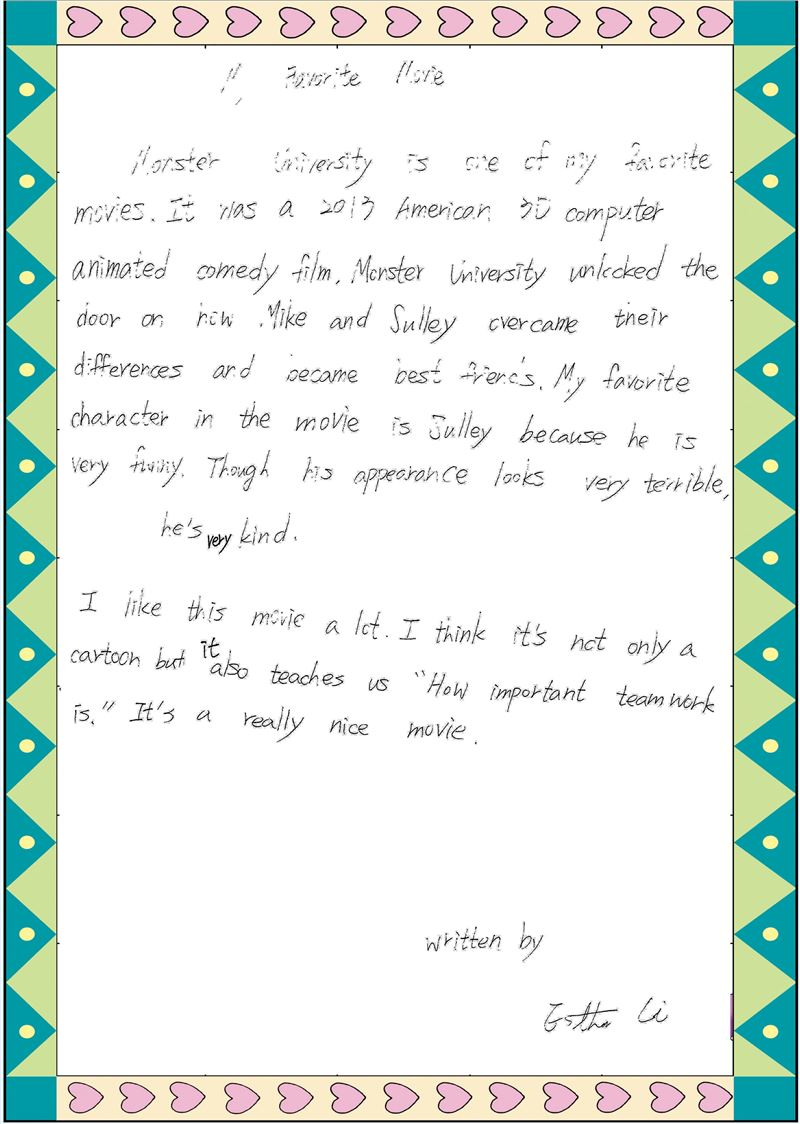 My Favorite Movie
Monster University is one of my favorite
movies. It was a 2013 American 3D computer
animated comedy film. Monster University unlocked the
door on how Mike and Sulley overcame their
differences and became best friends. My favorite
character in the movie is Sulley because he is
very funny. Though his appearance looks very terrible,
he's very kind.
I like this movie a lot. I think it's not only a
cartoon but it also teaches us "How important teamwork
is." It's a really nice movie.
written by
Esther Li